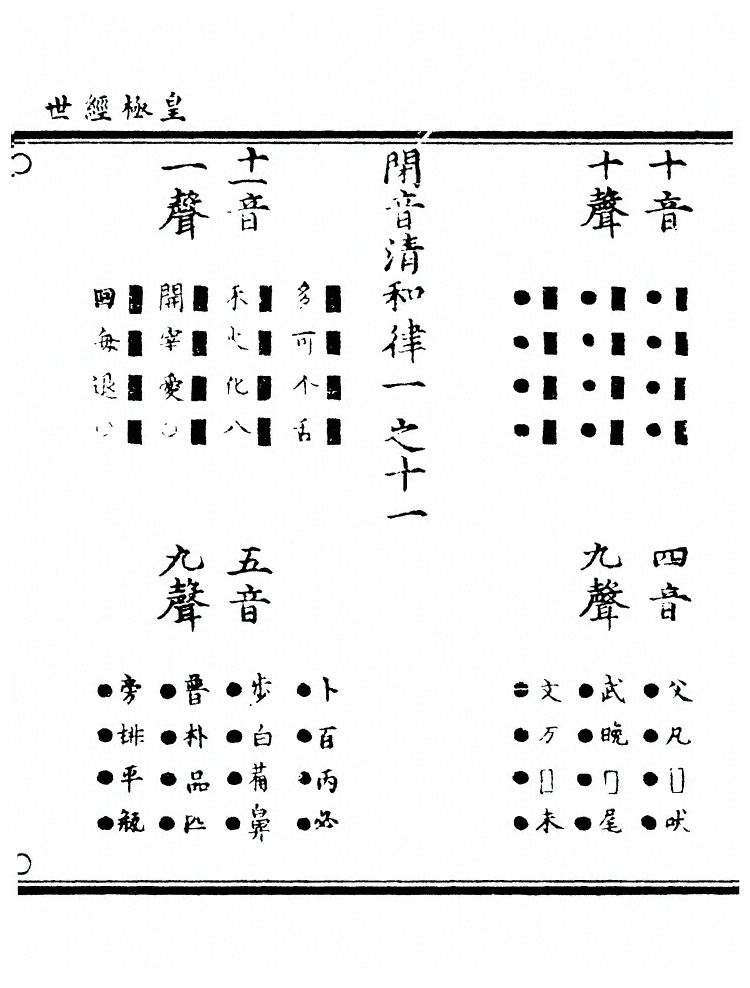 皇極經世
十音
十聲
■■■■
●●●●
■■■■
●●●●
■■■■
●●●●
四音
九聲
父凡□吠
●●●●
武晚□尾
●●●●
文万□未
●●●●
閉音清和律一之十一
十一音
一聲
■■■■
多可个舌
■■■■
禾火化八
■■■■
開宰愛○
■■■■
回每退○
五音
九聲
卜百丙必
●●●●
步白葡鼻
●●●●
普朴品匹
●●●●
旁排平瓶
●●●●